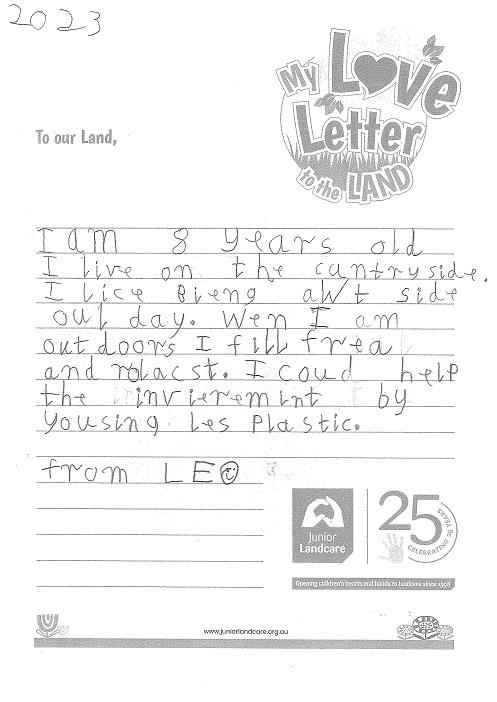 2023
My Love
Letter
to the LAND
To our Land,
I am 8 years old
I live on the cuntryside.
I lice Bieng aWt side
oul day. Wen I am
outdoors I fill frea
and rolacst. I coud help
the invieremint by
yousing les Plastic.
from LEO
Junior
Landcare
25
CELEBRATING 25 YEARS
Opening children's hearts and hands to landcare since 1998
www.juniorlandcare.org.au